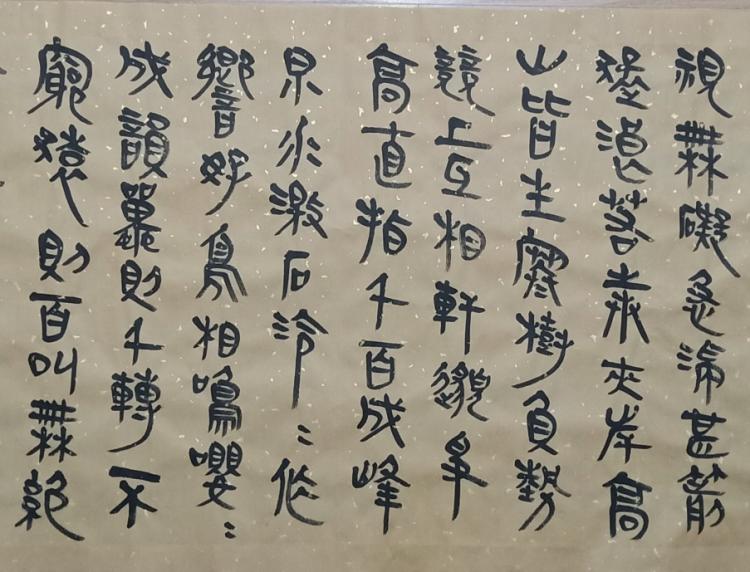 視無礙急湍甚箭
猛浪若奔夾岸高
山皆生寒樹負勢
競上互相軒邈爭
高直指千百成峰
泉水激石泠〻作
響好鳥相鳴嚶〻
成韻蟬則千轉不
窮猿則百叫無絕